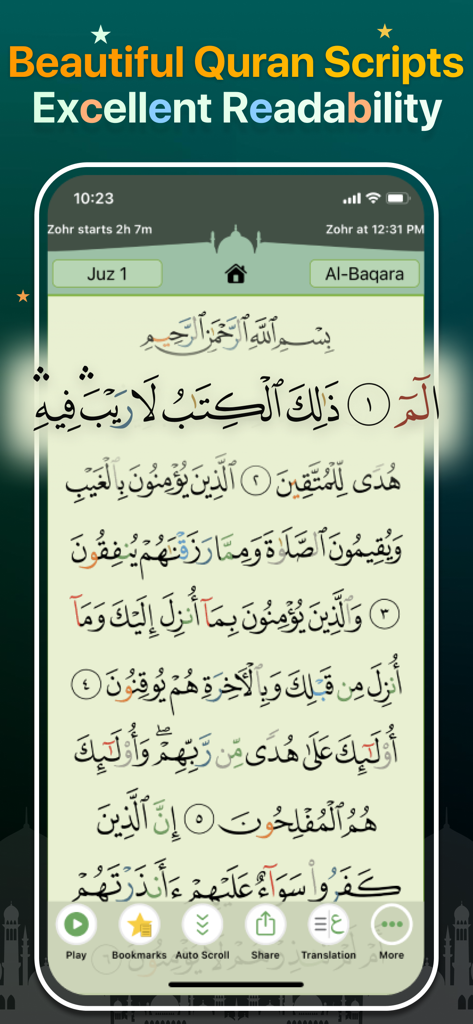 Beautiful Quran Scripts
Excellent Readability
10:23
Zohr starts 2h 7m
Zohr at 12:31 PM
Juz 1
Al-Baqara
بِسْمِ اللَّهِ الرَّحْمَٰنِ الرَّحِيمِ
الٓمٓ ١ ذَٰلِكَ الْكِتَٰبُ لَا رَيْبَ ۛ فِيهِ ۛ
هُدًى لِّلْمُتَّقِينَ ٢ الَّذِينَ يُؤْمِنُونَ بِالْغَيْبِ
وَيُقِيمُونَ الصَّلَوٰةَ وَمِمَّا رَزَقْنَٰهُمْ يُنفِقُونَ
٣ وَالَّذِينَ يُؤْمِنُونَ بِمَآ أُنزِلَ إِلَيْكَ وَمَآ
أُنزِلَ مِن قَبْلِكَ وَبِالْأَخِرَةِ هُمْ يُوقِنُونَ ٤
أُوْلَٰٓئِكَ عَلَىٰ هُدًى مِّن رَّبِّهِمْ ۖ وَأُوْلَٰٓئِكَ
هُمُ الْمُفْلِحُونَ ٥ إِنَّ الَّذِينَ
كَفَرُوا۟ سَوَآءٌ عَلَيْهِمْ ءَأَنذَرْتَهُمْ
Play
Bookmarks
Auto Scroll
Share
Translation
More